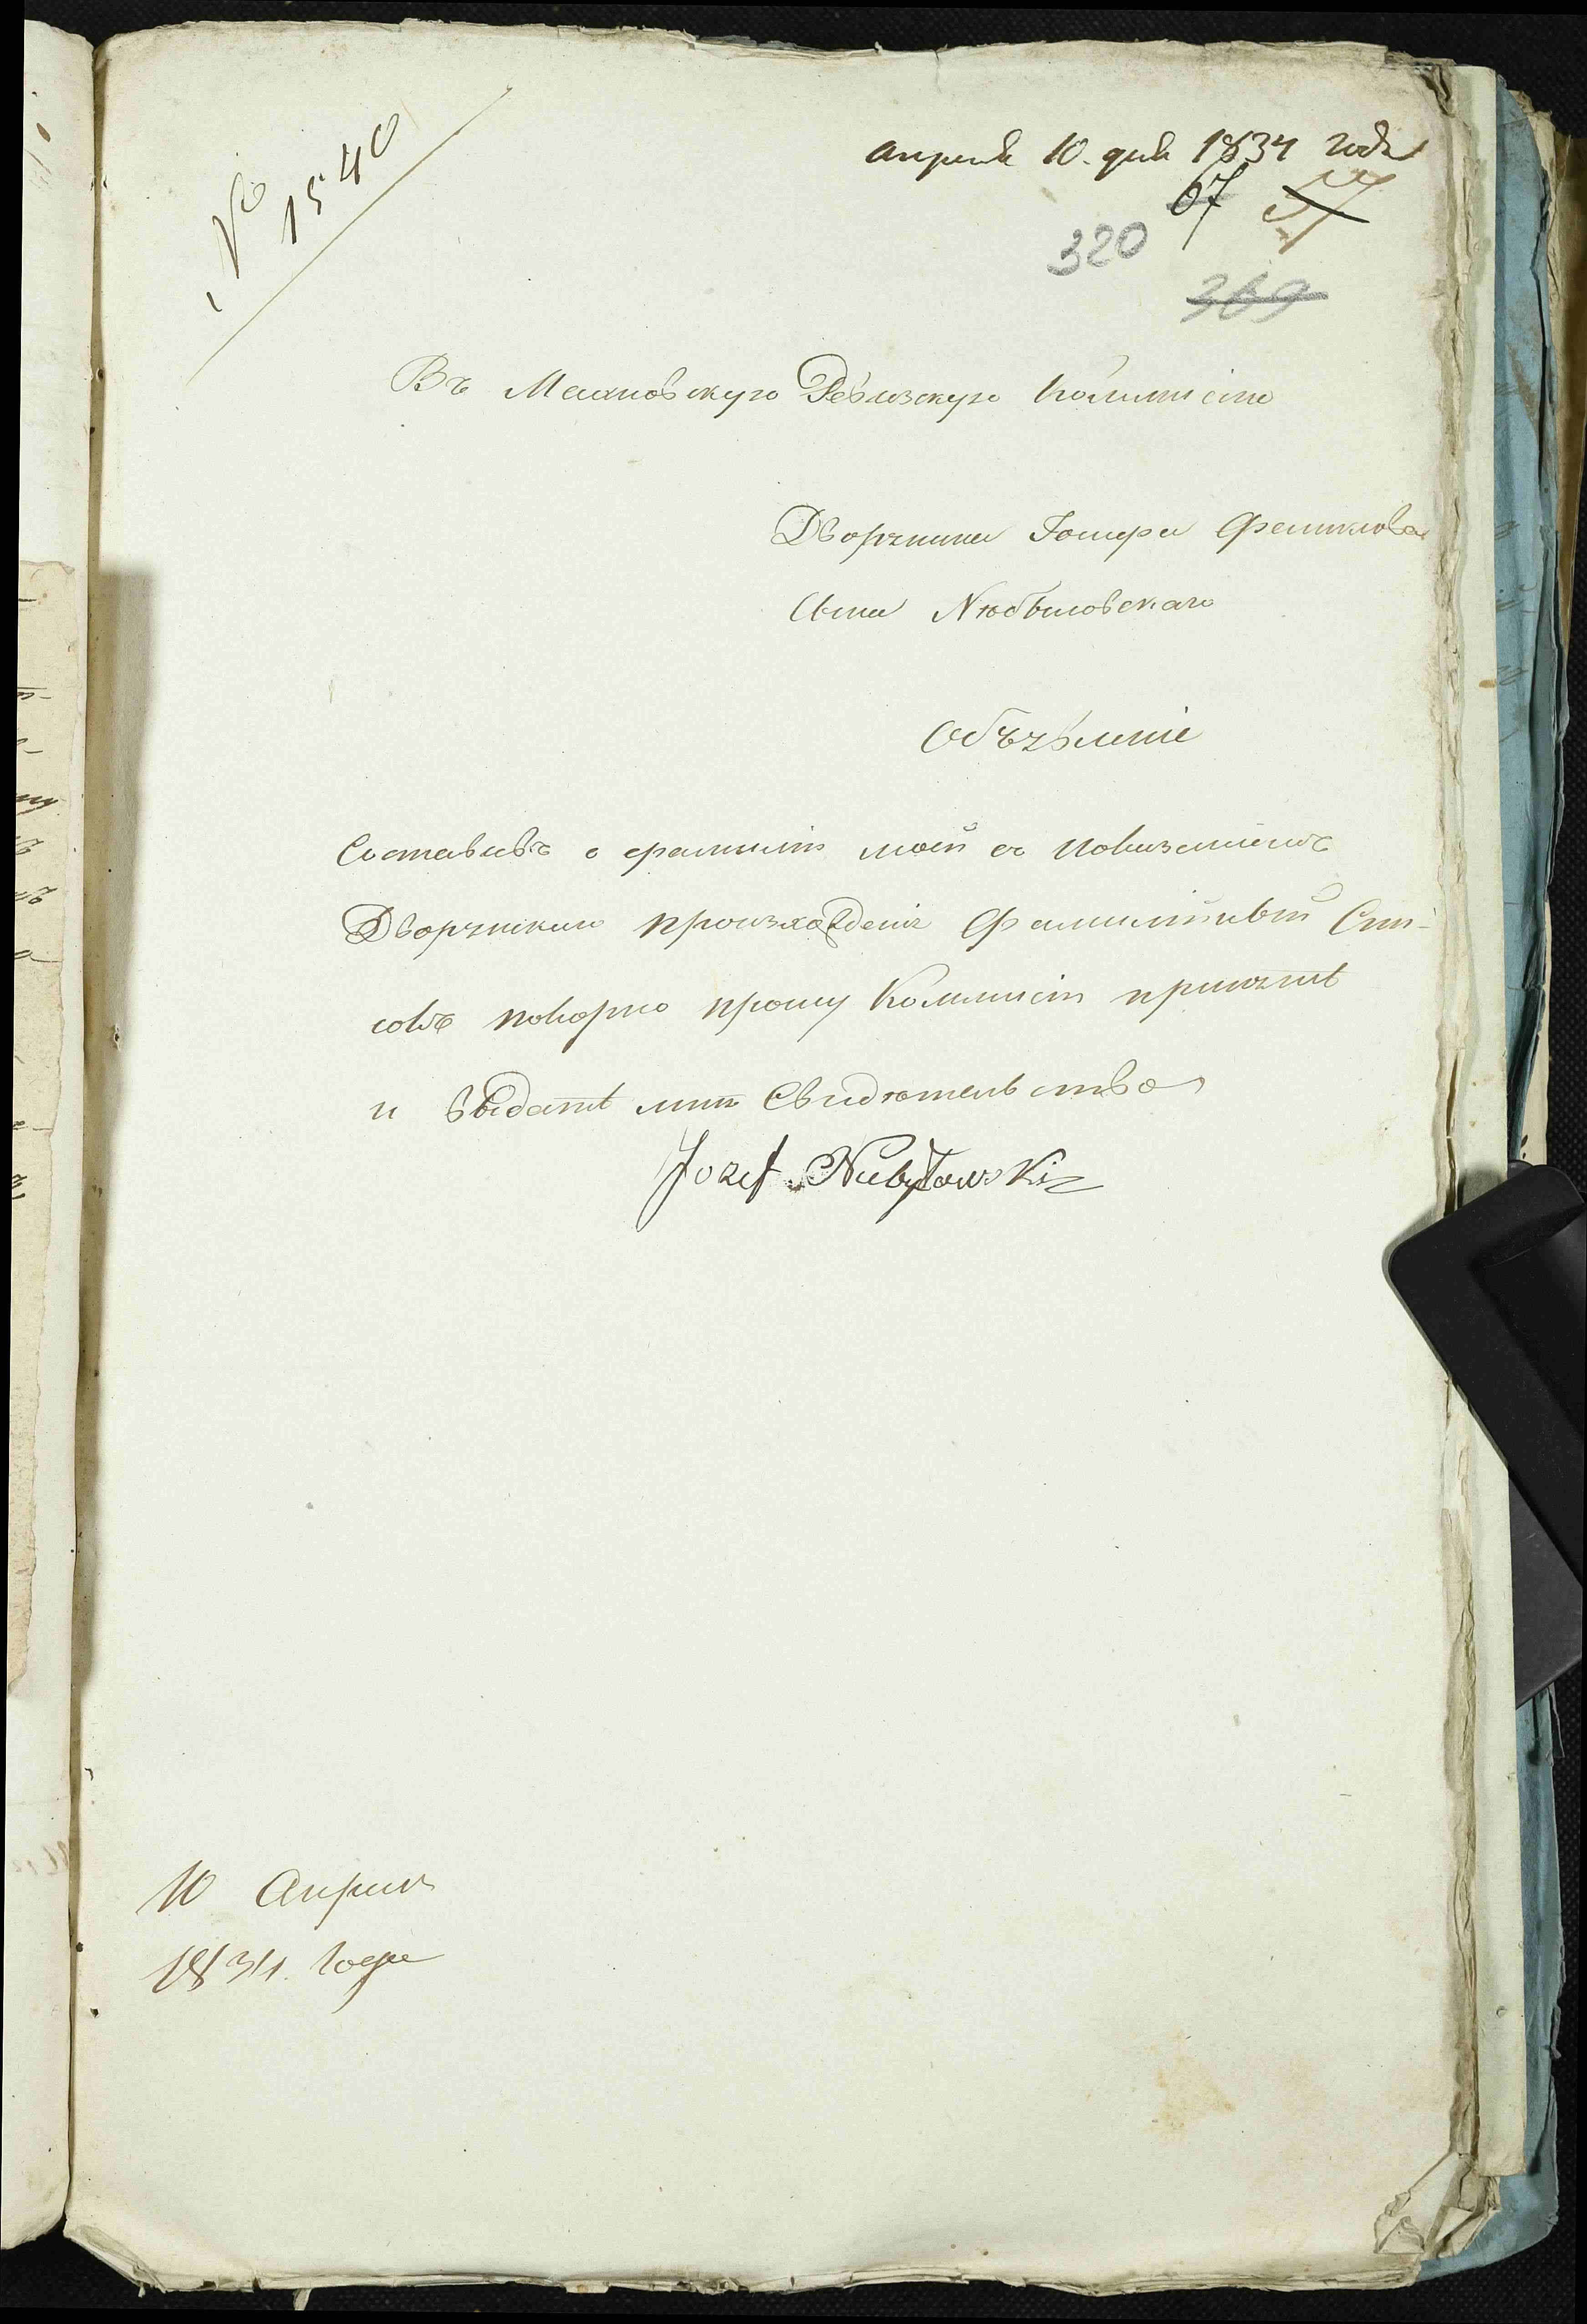 № 1540
апреля 10. дня 1834 года
67 57
320
369
Въ Ревизскую Коммисію
Дворянина Іосифа Феликсова
Сына Любыловскаго
Объявленіе
Составивъ о фамиліи моей съ показаніемъ
Дворянскаго произхожденія Фамилійный Спи-
сокъ покорно прошу Коммисіи принять
и выдать мнѣ Свидѣтельство
Jozef
10 Апреля
1834. Года